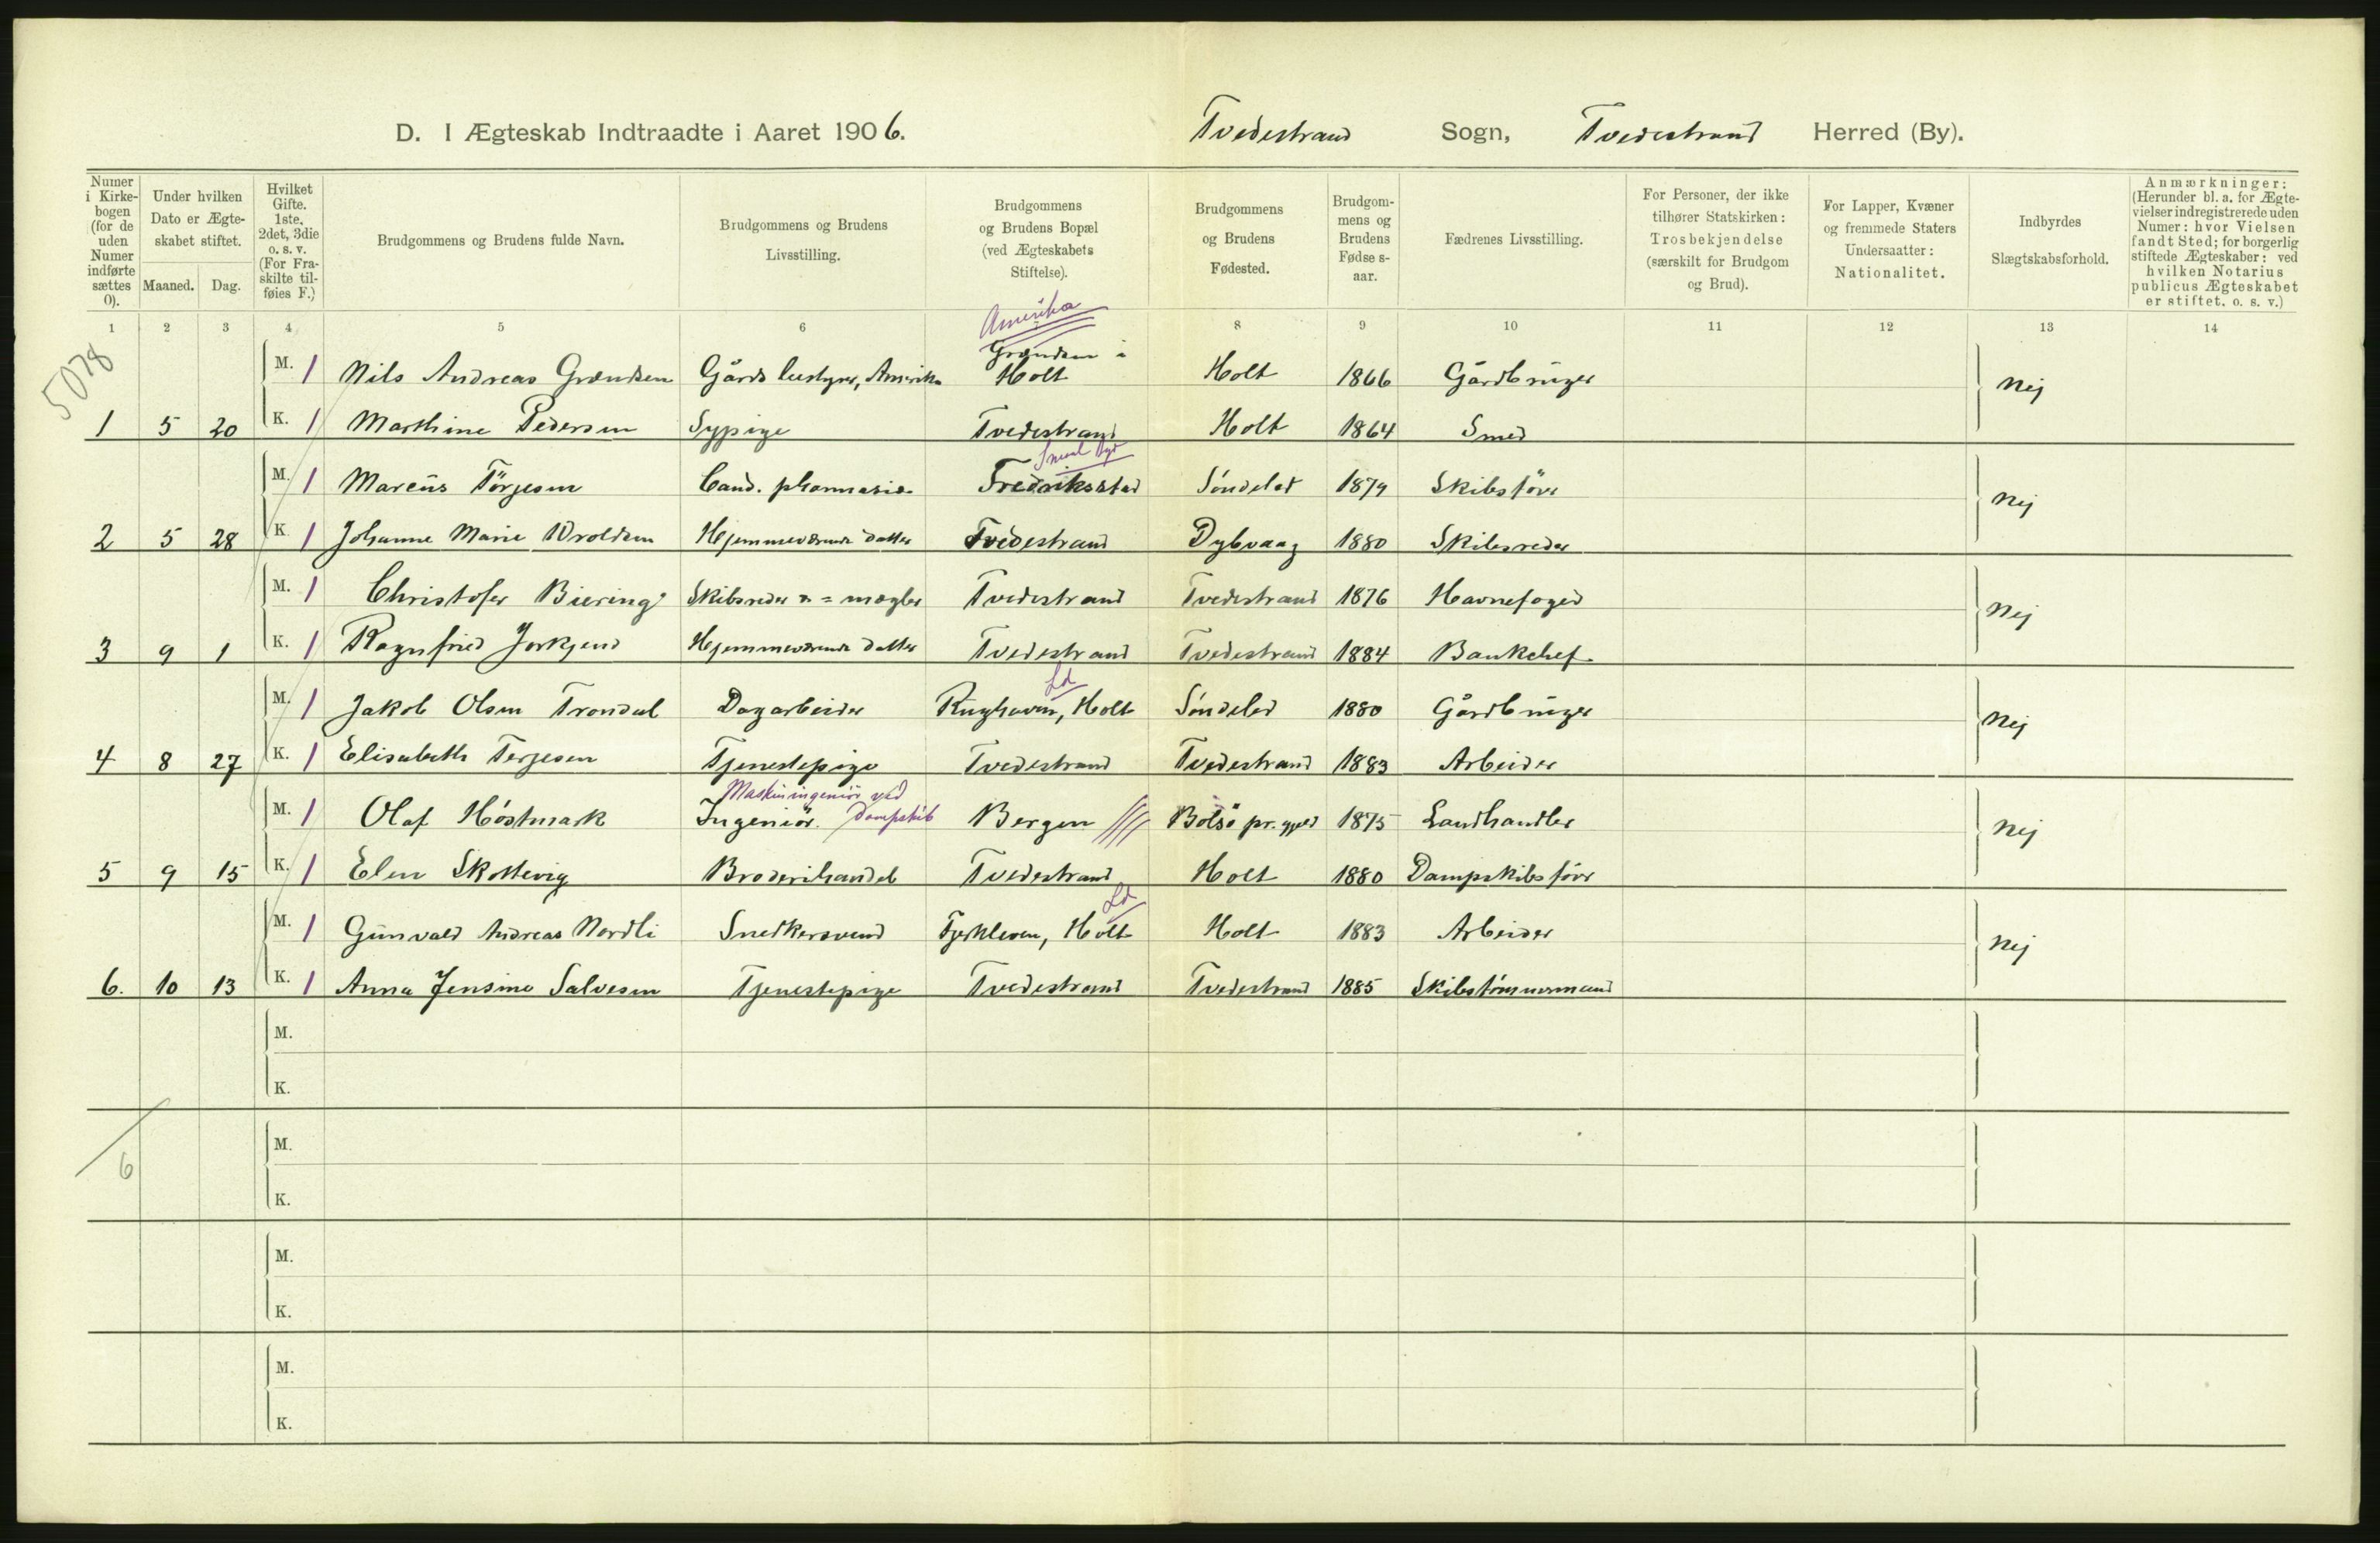 D. I Ægteskab Indtraadte i Aaret 1906. Tvedestrand Sogn, Tvedestrand Herred (By).
Numer i Kirkebogen (for de uden Numer indførte sættes 0).
Under hvilken Dato er Ægteskabet stiftet.
Maaned. Dag.
Hvilket Gifte. 1ste, 2det, 3die o. s. v. (For Fraskilte tilføies F.)
Brudgommens og Brudens fulde Navn.
Brudgommens og Brudens Livsstilling.
Brudgommens og Brudens Bopæl (ved Ægteskabets Stiftelse).
Brudgommens og Brudens Fødested.
Brudgommens og Brudens Fødselsaar.
Fædrenes Livsstilling.
For Personer, der ikke tilhører Statskirken: Trosbekjendelse (særskilt for Brudgom og Brud).
For Lapper, Kvæner og fremmede Staters Undersaatter: Nationalitet.
Indbyrdes Slægtskabsforhold.
Anmærkninger: (Herunder bl. a. for Ægtevielser indregistrerede uden Numer: hvor Vielsen fandt Sted; for borgerlig stiftede Ægteskaber: ved hvilken Notarius publicus Ægteskabet er stiftet, o. s. v.)
1 2 3 4 5 6 8 9 10 11 12 13 14
5078
Amerika
M. 1 Nils Andreas Grændsen Gårdsbestyrer, Amerika Grændsen i Holt Holt 1866 Gårdbruger Nej
1 5 20 K. 1 Marthine Pedersen Sypige Tvedestrand Holt 1864 Smed
M. 1 Marcus Törjesen Cand. pharmacia Fredriksstad Söndeled 1879 Skibsförer Nej
2 5 28 K. 1 Johanne Marie Wroldsen Hjemmeværende datter Tvedestrand Dybvaag 1880 Skibsreder
M. 1 Christofer Biering Skibsreder & = mægler Tvedestrand Tvedestrand 1876 Havnefoged Nej
3 9 1 K. 1 Ragnfried Jorkjend Hjemmeværende datter Tvedestrand Tvedestrand 1884 Bankchef
Ld
M. 1 Jakob Olsen Trondal Dagarbeider Holt Söndeled 1880 Gårdbruger Nej
4 8 27 K. 1 Elisabeth Terjesen Tjenestepige Tvedestrand Tvedestrand 1883 Arbeider
Maskiningeniör ved Dampskib
M. 1 Olaf Höstmark Ingeniör. Bergen Bolsö pr. 1875 Landhandler Nej
5 9 15 K. 1 Elen Skottevig Broderihandel Tvedestrand Holt 1880 Dampskibsförer
Ld
M. 1 Gunvald Andreas Nordli Snedkersvend Fjerkleven, Holt Holt 1883 Arbeider Nej
6. 10 13 K. 1 Anna Jensine Salvesen Tjenestepige Tvedestrand Tvedestrand 1885 Skibstömmermand
M.
K.
6
M.
K.
M.
K.
M.
K.